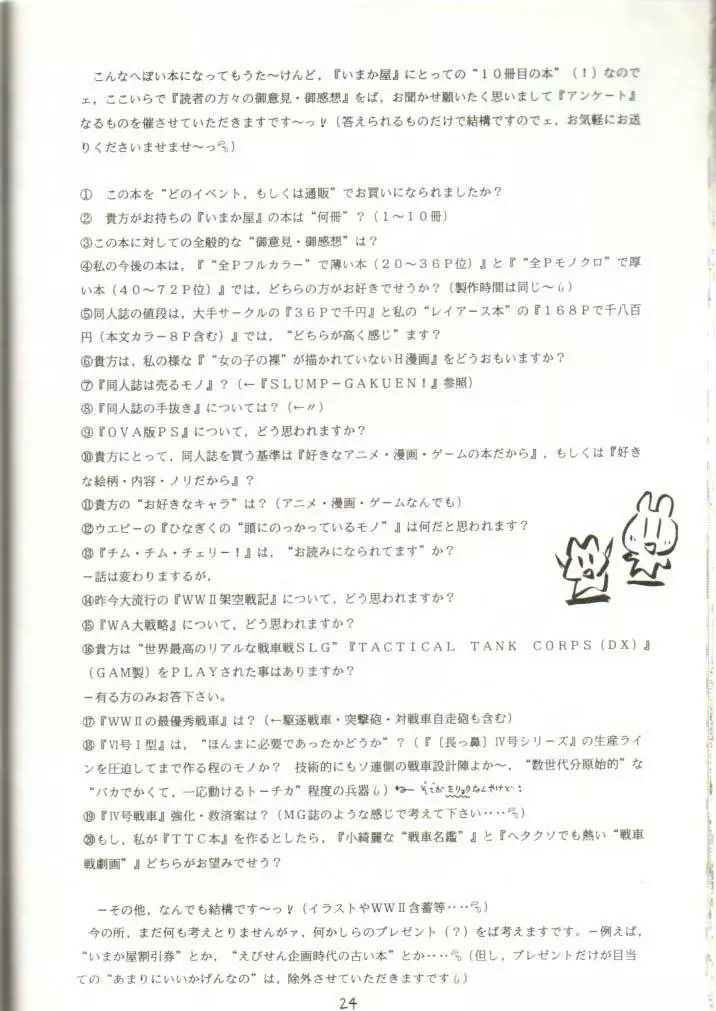 こんなへぽい本になってもうた～けんど，『いまか屋』にとっての“１０冊目の本”（！）なので
ェ，ここいらで『読者の方々の御意見・御感想』をば，お聞かせ願いたく思いまして『アンケート』
なるものを催させていただきますです～っ！（答えられるものだけで結構ですのでェ，お気軽にお送
りくださいませませ～っ）
①　この本を“どのイベント，もしくは通販”でお買いになられましたか？
②　貴方がお持ちの『いまか屋』の本は“何冊”？（１～１０冊）
③この本に対しての全般的な“御意見・御感想”は？
④私の今後の本は，『“全Ｐフルカラー”で薄い本（２０～３６Ｐ位）』と『“全Ｐモノクロ”で厚
い本（４０～７２Ｐ位）』では，どちらの方がお好きでせうか？（製作時間は同じ～）
⑤同人誌の値段は，大手サークルの『３６Ｐで千円』と私の“レイアース本”の『１６８Ｐで千八百
円（本文カラー８Ｐ含む）』では，“どちらが高く感じ”ます？
⑥貴方は，私の様な『“女の子の裸”が描かれていないＨ漫画』をどうおもいますか？
⑦『同人誌は売るモノ』？（←『ＳＬＵＭＰ－ＧＡＫＵＥＮ！』参照）
⑧『同人誌の手抜き』については？（←〃）
⑨『ＯＶＡ版ＰＳ』について，どう思われますか？
⑩貴方にとって，同人誌を買う基準は『好きなアニメ・漫画・ゲームの本だから』，もしくは『好き
な絵柄・内容・ノリだから』？
⑪貴方の“お好きなキャラ”は？（アニメ・漫画・ゲームなんでも）
⑫ウエピーの『ひなぎくの“頭にのっかっているモノ”』は何だと思われます？
⑬『チム・チム・チェリー！』は，“お読みになられてます”か？
－話は変わりまするが，
⑭昨今大流行の『ＷＷⅡ架空戦記』について，どう思われますか？
⑮『ＷＡ大戦略』について，どう思われますか？
⑯貴方は“世界最高のリアルな戦車戦ＳＬＧ”『ＴＡＣＴＩＣＡＬ　ＴＡＮＫ　ＣＯＲＰＳ（ＤＸ）』
（ＧＡＭ製）をＰＬＡＹされた事はありますか？
－有る方のみお答下さい。
⑰『ＷＷⅡの最優秀戦車』は？（←駆逐戦車・突撃砲・対戦車自走砲も含む）
⑱『Ⅵ号Ⅰ型』は，“ほんまに必要であったかどうか”？（『〔長っ鼻〕Ⅳ号シリーズ』の生産ライ
ンを圧迫してまで作る程のモノか？　技術的にもソ連側の戦車設計陣よか～，“数世代分原始的”な
“バカでかくて，一応動けるトーチカ”程度の兵器）
⑲『Ⅳ号戦車』強化・救済案は？（ＭＧ誌のような感じで考えて下さい‥‥）
⑳もし，私が『ＴＴＣ本』を作るとしたら，『小綺麗な“戦車名鑑”』と『ヘタクソでも熱い“戦車
戦劇画”』どちらがお望みでせう？
－その他，なんでも結構です～っ！（イラストやＷＷⅡ含蓄等‥‥）
今の所，まだ何も考えとりませんがァ，何かしらのプレゼント（？）をば考えますです。－例えば，
“いまか屋割引券”とか，“えびせん企画時代の古い本”とか‥‥（但し，プレゼントだけが目当
ての“あまりにいいかげんなの”は，除外させていただきますです）
24